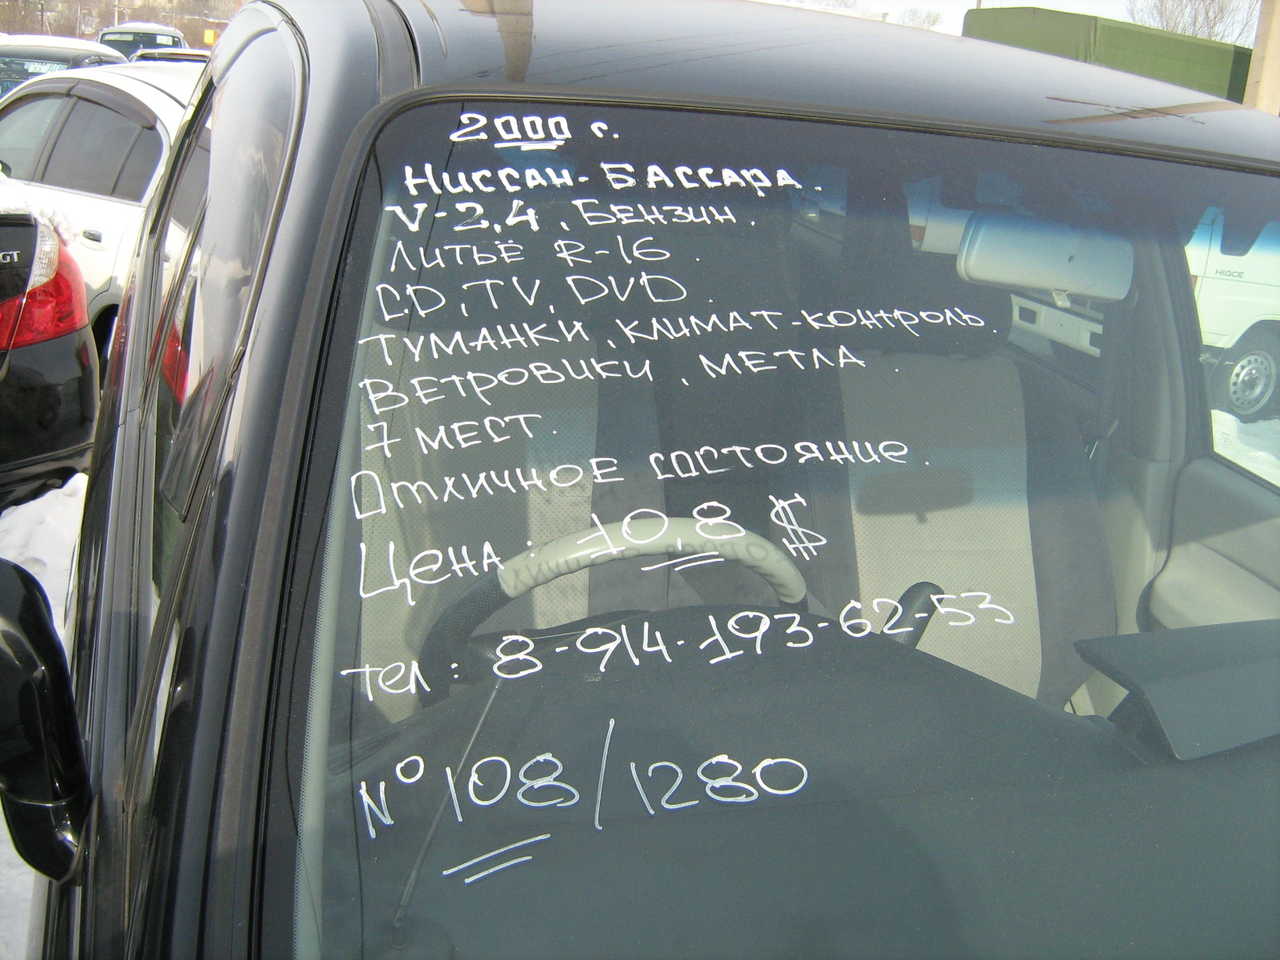 2000 г.
Ниссан-Бассара.
V-2,4, Бензин.
Литьё R-16.
CD, TV, DVD.
Туманки, климат-контроль.
Ветровики, метла.
7 мест.
Отличное состояние.
Цена: 10,8 $
тел: 8-914-193-62-53
N° 108/1280
GT
HIACE